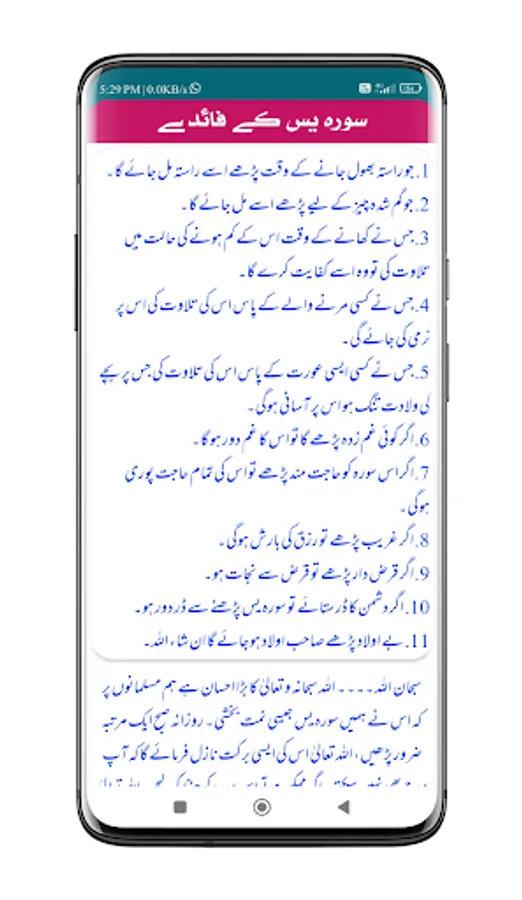 5:29 PM | 0.0KB/s
سورہ یس کے فائدے
1. جو راستہ بھول جانے کے وقت پڑھے اسے راستہ مل جائے گا۔
2. جو گم شدہ چیز کے لیے پڑھے اسے مل جائے گا۔
3. جس نے کھانے کے وقت اس کے کم ہونے کی حالت میں
تلاوت کی تو وہ اسے کفایت کرے گا۔
4. جس نے کسی مرنے والے کے پاس اس کی تلاوت کی اس پر
نرمی کی جائے گی۔
5. جس نے کسی ایسی عورت کے پاس اس کی تلاوت کی جس پر بچے
کی ولادت تنگ ہو اس پر آسانی ہوگی۔
6. اگر کوئی غم زدہ پڑھے گا تو اس کا غم دور ہو گا۔
7. اگر اس سورہ کو حاجت مند پڑھے تو اس کی تمام حاجت پوری
ہوگی۔
8. اگر غریب پڑھے تو رزق کی بارش ہوگی۔
9. اگر قرض دار پڑھے تو قرض سے نجات ہو۔
10. اگر دشمن کا ڈر ستائے تو سورہ یس پڑھنے سے ڈر دور ہو۔
11. بے اولاد پڑھے صاحب اولاد ہو جائے گا ان شاء اللہ۔
سبحان اللہ۔۔۔۔ اللہ سبحانہ و تعالیٰ کا بڑا احسان ہے ہم مسلمانوں پر
کہ اس نے ہمیں سورہ یس جیسی نمت بخشی۔ روزانہ صبح ایک مرتبہ
ضرور پڑھیں، اللہ تعالیٰ اس کی ایسی برکت نازل فرمائے گا کہ آپ